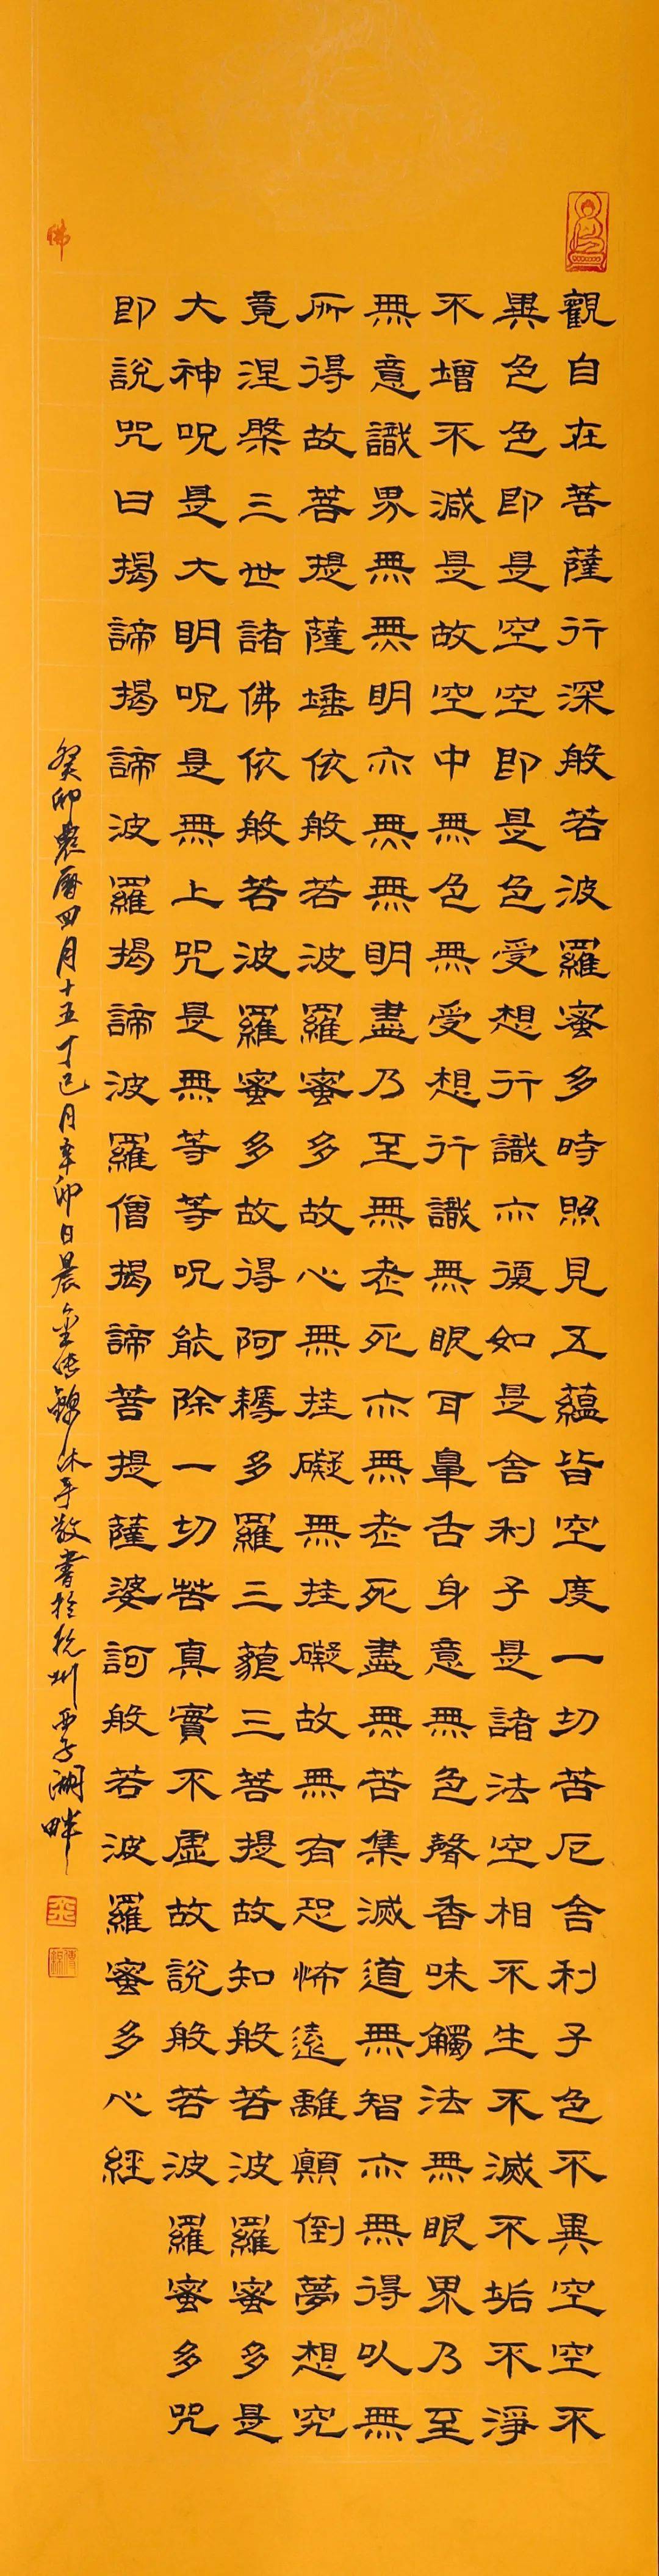 觀自在菩薩行深般若波羅蜜多時照見五蘊皆空度一切苦厄舍利子色不異空空不
異色色即是空空即是色受想行識亦復如是舍利子是諸法空相不生不滅不垢不淨
不增不減是故空中無色無受想行識無眼耳鼻舌身意無色聲香味觸法無眼界乃至
無意識界無無明亦無無明盡乃至無老死亦無老死盡無苦集滅道無智亦無得以無
所得故菩提薩埵依般若波羅蜜多故心無挂礙無挂礙故無有恐怖遠離顛倒夢想究
竟涅槃三世諸佛依般若波羅蜜多故得阿耨多羅三藐三菩提故知般若波羅蜜多是
大神呪是大明呪是無上咒是無等等呪能除一切苦真實不虛故說般若波羅蜜多咒
即說咒曰揭諦揭諦波羅揭諦波羅僧揭諦菩提薩婆訶般若波羅蜜多心經
佛
癸卯農曆四月十五丁巳月辛卯日晨金傳錦沐手敬書於杭州西子湖畔